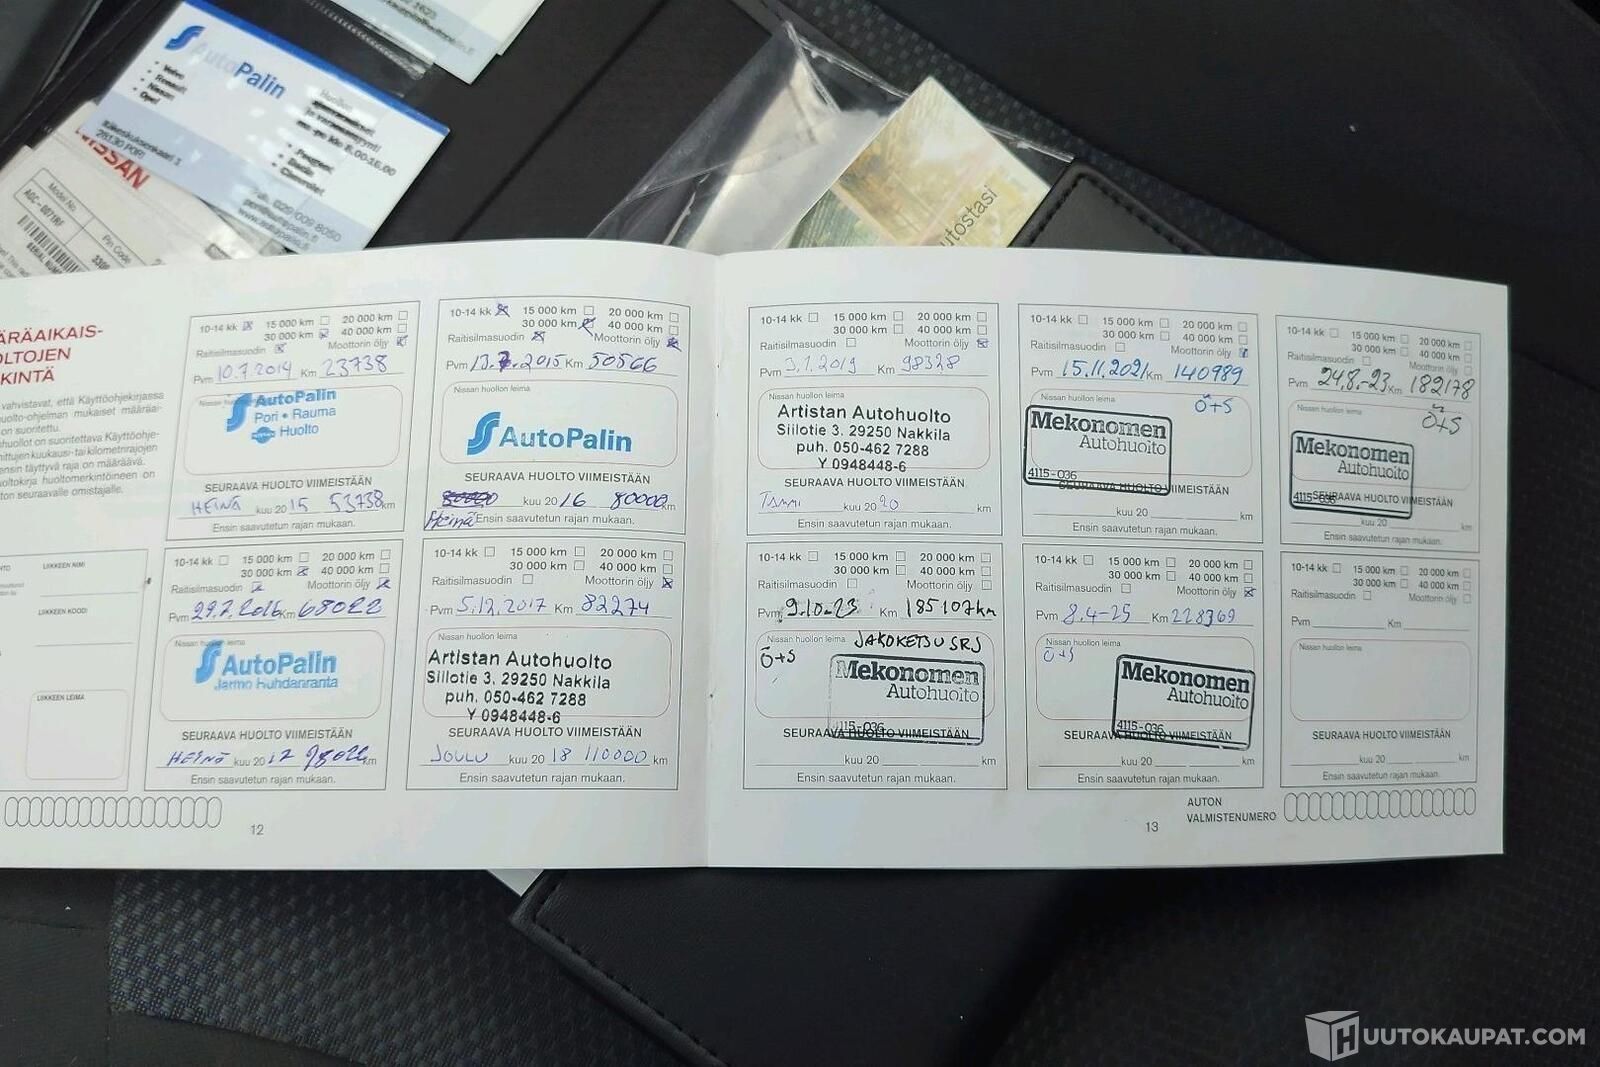 AutoPalin
• Volvo
• Renault
• Nissan
• Opel
28130 PORI
• Peugeot
• Chevrolet
029 009 8050
NISSAN
Model No.
AGC-0071RF
Pin Code
SERIAL NUM
utostasi
ÄRÄAIKAIS-
OLTOJEN
KINTÄ
vahvistavat, että Käyttöohjekirjassa
huolto-ohjelman mukaiset määräai-
on suoritettu.
nhuollot on suoritettava Käyttöohje-
nittujen kuukausi- tai kilometrirajojen
ensin täyttyvä raja on määräävä.
oltokirja huoltomerkintöineen on
ton seuraavalle omistajalle.
LIIKKEEN NIMI
LIIKKEEN KOODI
LIIKKEEN LEIMA
10-14 kk 15 000 km 20 000 km
30 000 km 40 000 km
Raitisilmasuodin Moottorin öljy
Pvm 10.7.2014 Km 23738
Nissan huollon leima
AutoPalin
Pori • Rauma
Huolto
SEURAAVA HUOLTO VIIMEISTÄÄN
HEINÄ kuu 2015 53738 km
Ensin saavutetun rajan mukaan.
10-14 kk 15 000 km 20 000 km
30 000 km 40 000 km
Raitisilmasuodin Moottorin öljy
Pvm 13.7.2015 Km 50566
Nissan huollon leima
AutoPalin
SEURAAVA HUOLTO VIIMEISTÄÄN
kuu 2016 80000 km
Heinä Ensin saavutetun rajan mukaan.
10-14 kk 15 000 km 20 000 km
30 000 km 40 000 km
Raitisilmasuodin Moottorin öljy
Pvm 29.7.2016 Km 68022
Nissan huollon leima
AutoPalin
Jarmo Huhdanranta
SEURAAVA HUOLTO VIIMEISTÄÄN
HEINÄ kuu 2017 98022 km
Ensin saavutetun rajan mukaan.
10-14 kk 15 000 km 20 000 km
30 000 km 40 000 km
Raitisilmasuodin Moottorin öljy
Pvm 5.12.2017 Km 82274
Nissan huollon leima
Artistan Autohuolto
Siilotie 3, 29250 Nakkila
puh. 050-462 7288
Y 0948448-6
SEURAAVA HUOLTO VIIMEISTÄÄN
JOULU kuu 2018 110000 km
Ensin saavutetun rajan mukaan.
12
10-14 kk 15 000 km 20 000 km
30 000 km 40 000 km
Raitisilmasuodin Moottorin öljy
Pvm 3.1.2019 Km 98328
Nissan huollon leima
Artistan Autohuolto
Siilotie 3. 29250 Nakkila
puh. 050-462 7288
Y 0948448-6
SEURAAVA HUOLTO VIIMEISTÄÄN
TAMMI kuu 2020 km
Ensin saavutetun rajan mukaan.
10-14 kk 15 000 km 20 000 km
30 000 km 40 000 km
Raitisilmasuodin Moottorin öljy
Pvm 15.11.2021 Km 140989
Nissan huollon leima
Ö+S
Mekonomen
Autohuolto
4115-036
SEURAAVA HUOLTO VIIMEISTÄÄN
kuu 20 km
Ensin saavutetun rajan mukaan.
10-14 kk 15 000 km 20 000 km
30 000 km 40 000 km
Raitisilmasuodin Moottorin öljy
Pvm 24.8.-23 Km 182178
Nissan huollon leima
Ö+S
Mekonomen
Autohuolto
4115-036
SEURAAVA HUOLTO VIIMEISTÄÄN
kuu 20 km
Ensin saavutetun rajan mukaan.
10-14 kk 15 000 km 20 000 km
30 000 km 40 000 km
Raitisilmasuodin Moottorin öljy
Pvm 9.10-23 Km 185107km
Nissan huollon leima JAKOKETJU SRJ
Ö+S
Mekonomen
Autohuolto
4115-036
SEURAAVA HUOLTO VIIMEISTÄÄN
kuu 20 km
Ensin saavutetun rajan mukaan.
10-14 kk 15 000 km 20 000 km
30 000 km 40 000 km
Raitisilmasuodin Moottorin öljy
Pvm 8.4-25 Km 228369
Nissan huollon leima
Ö+S
Mekonomen
Autohuolto
4115-036
SEURAAVA HUOLTO VIIMEISTÄÄN
kuu 20 km
Ensin saavutetun rajan mukaan.
10-14 kk 15 000 km 20 000 km
30 000 km 40 000 km
Raitisilmasuodin Moottorin öljy
Pvm Km
Nissan huollon leima
SEURAAVA HUOLTO VIIMEISTÄÄN
kuu 20 km
Ensin saavutetun rajan mukaan.
13
AUTON
VALMISTENUMERO
HUUTOKAUPAT.COM